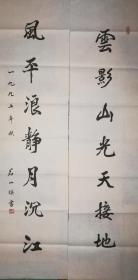 雲影山光天接地
風平浪靜月沉江
一九九五年秋